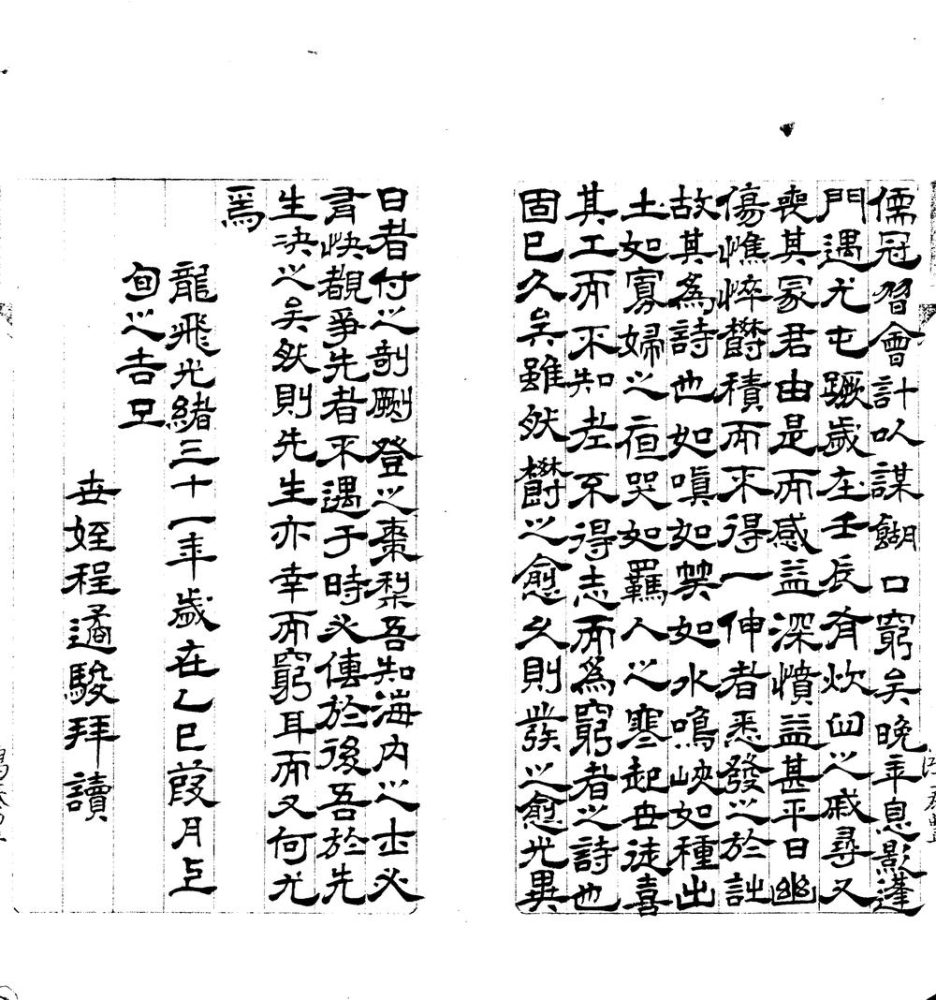 儒冠習會計以謀餬口窮矣晚年息影蓬
門遇尤屯蹶歲在壬辰有炊臼之戚尋又
喪其冢君由是而感益深憤益甚平日幽
傷憔悴欝積而不得一伸者悉發之於詩
故其為詩也如嗔如笑如水鳴峽如種出
土如寡婦之宿哭如羈人之寒起世徒喜
其工而不知老不得志而為窮者之詩也
固已久矣雖然欝之愈久則發之愈光異
日者付之剞劂登之棗梨吾知海內之士必
有快覩爭先者不遇于時必傳於後吾於先
生決之矣然則先生亦幸而窮耳而又何尤
焉
龍飛光緒三十一年歲在乙巳葭月上
旬之吉旦
世姪程遹駿拜讀